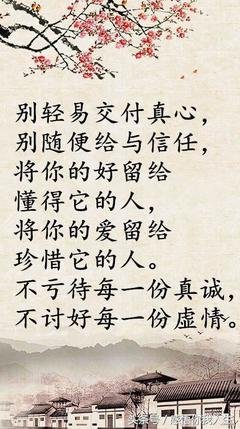 别轻易交付真心，
别随便给与信任，
将你的好留给
懂得它的人，
将你的爱留给
珍惜它的人。
不亏待每一份真诚，
不讨好每一份虚情。